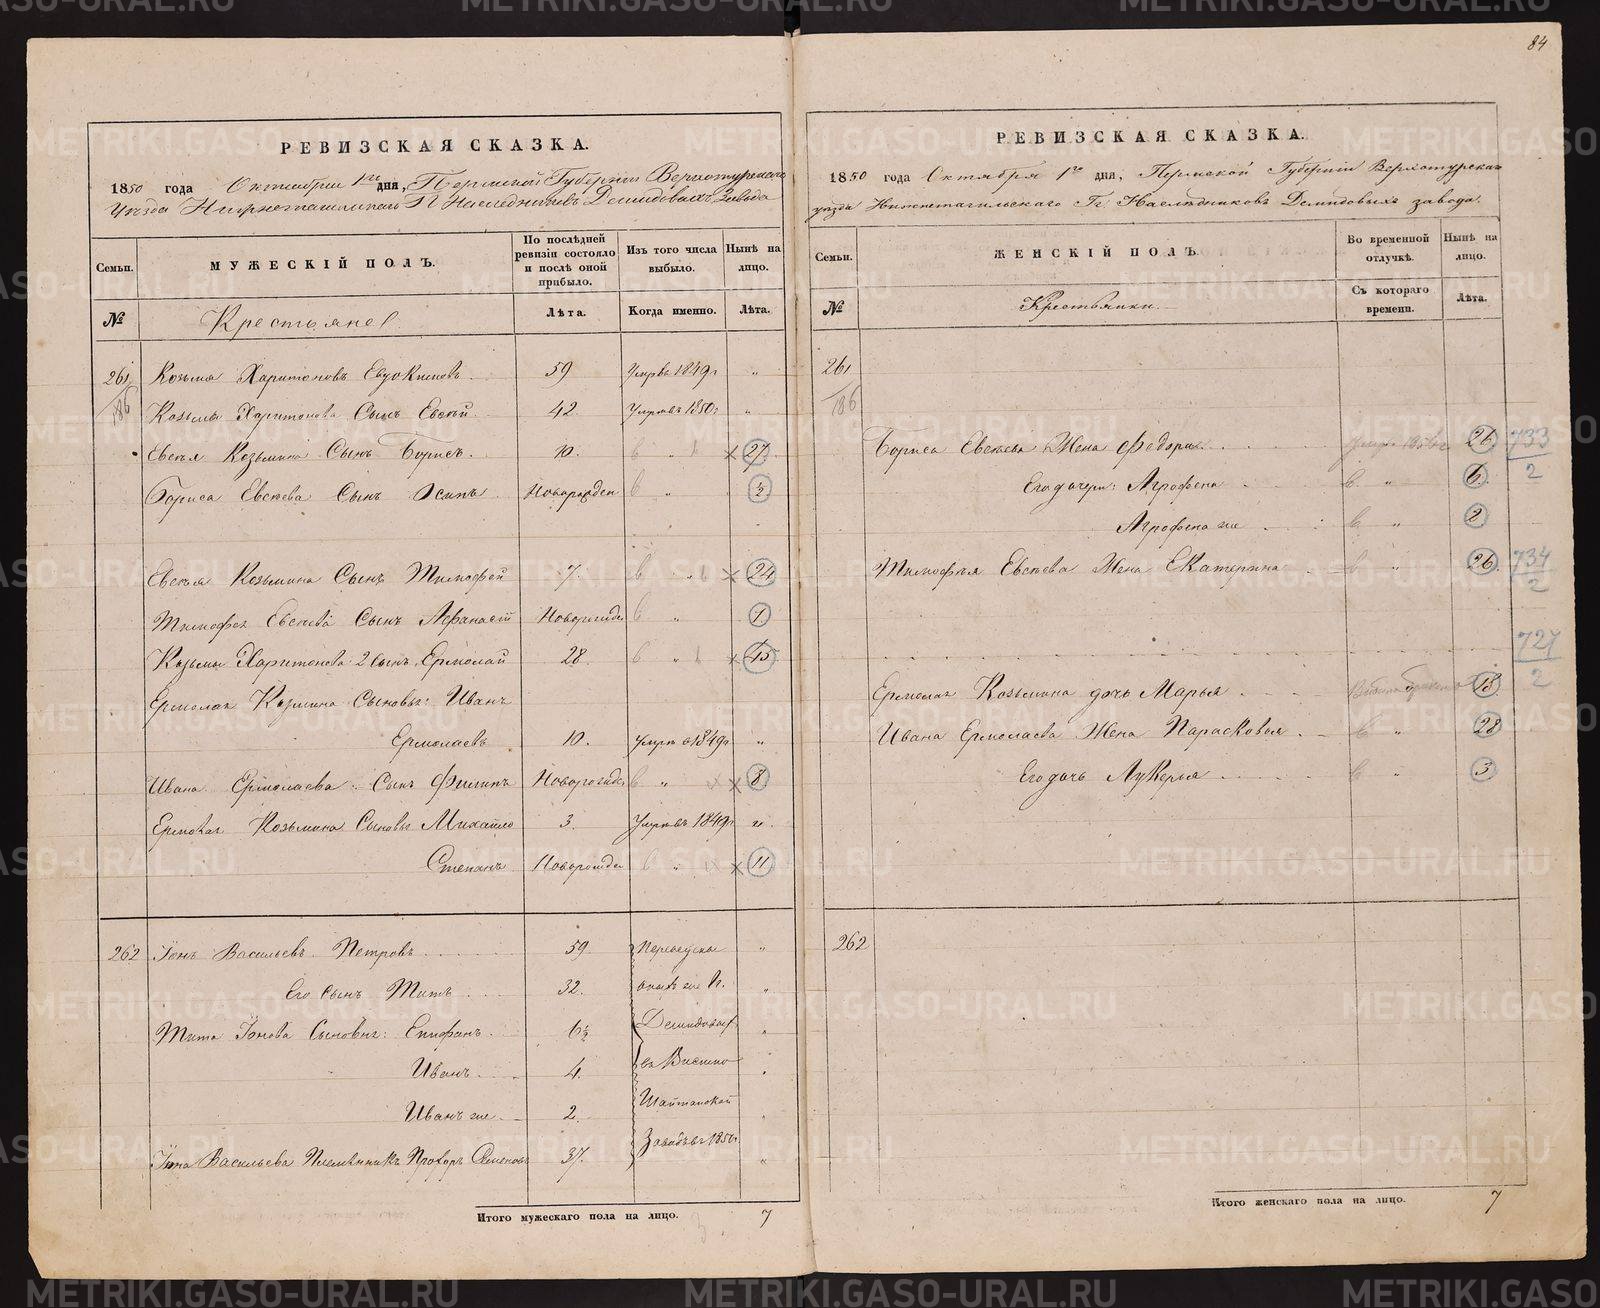 84
РЕВИЗСКАЯ СКАЗКА.
1850 года Октября 1го дня, Пермской Губернии Верхотурскаго
Уѣзда Нижнетагильскаго Гг. Наслѣдниковъ Демидовыхъ Завода
Семьи.
МУЖЕСКІЙ ПОЛЪ.
По послѣдней ревизіи состояло и послѣ оной прибыло.
Изъ того числа выбыло.
Нынѣ на лицо.
№
Крестьяне
Лѣта.
Когда именно.
Лѣта.
261 Козьма Харитоновъ Евдокимовъ 59 Умръ въ 1849г "
186 Козьмы Харитонова Сынъ Евсѣй 42 Умръ въ 1850г "
Евсѣя Козьмина Сынъ Борисъ 10. " 27
Бориса Евсѣева Сынъ Осипъ Новорожден " ½
Евсѣя Козьмина Сынъ Тимофей 7. " 24
Тимофея Евсѣева Сынъ Афанасій Новорожден " 1
Козьмы Харитонова 2 Сынъ Ермолай 28. " 45
Ермолая Козмина Сыновья: Иванъ
Ермолаевъ 10. Умръ въ 1849г "
Ивана Ермолаева Сынъ Филипъ Новорожден " 8
Ермолая Козьмина Сыновья Михайло 3. Умръ въ 1849г "
Степанъ Новорожден " 11
262 Іонъ Васильевъ Петровъ 59. "
Его Сынъ Титъ 32. "
Тита Іонова Сыновья: Епифанъ 6½ "
Иванъ 4. "
Иванъ же 2. "
Іона Васильева Племянникъ Прохоръ Семеновъ 37. "
Г.
Демидовыхъ
въ Висимо
Шайтанской
Заводъ въ 1850г.
Итого мужескаго пола на лицо. 7
3
РЕВИЗСКАЯ СКАЗКА.
1850 года Октября 1го дня, Пермской Губерніи Верхотурскаго
уѣзда Нижнетагильскаго Гг. Наслѣдниковъ Демидовыхъ завода.
Семьи.
ЖЕНСКІЙ ПОЛЪ.
Во временной отлучкѣ.
Нынѣ на лицо.
№
Крестьянки.
Съ котораго времени.
Лѣта.
261
186
Бориса Евсѣева Жена Федора 26 733
Его дочери: Агрофена " 6 2
Агрофена же " 2
Тимофея Евсѣева Жена Екатерина " 26 734
2
727
Ермолая Козьмина дочь Марья 15 2
Ивана Ермолаева Жена Парасковья " 28
Его дочь Лукерья " 3
262
Итого женскаго пола на лицо. 7
METRIKI.GASO-URAL.RU